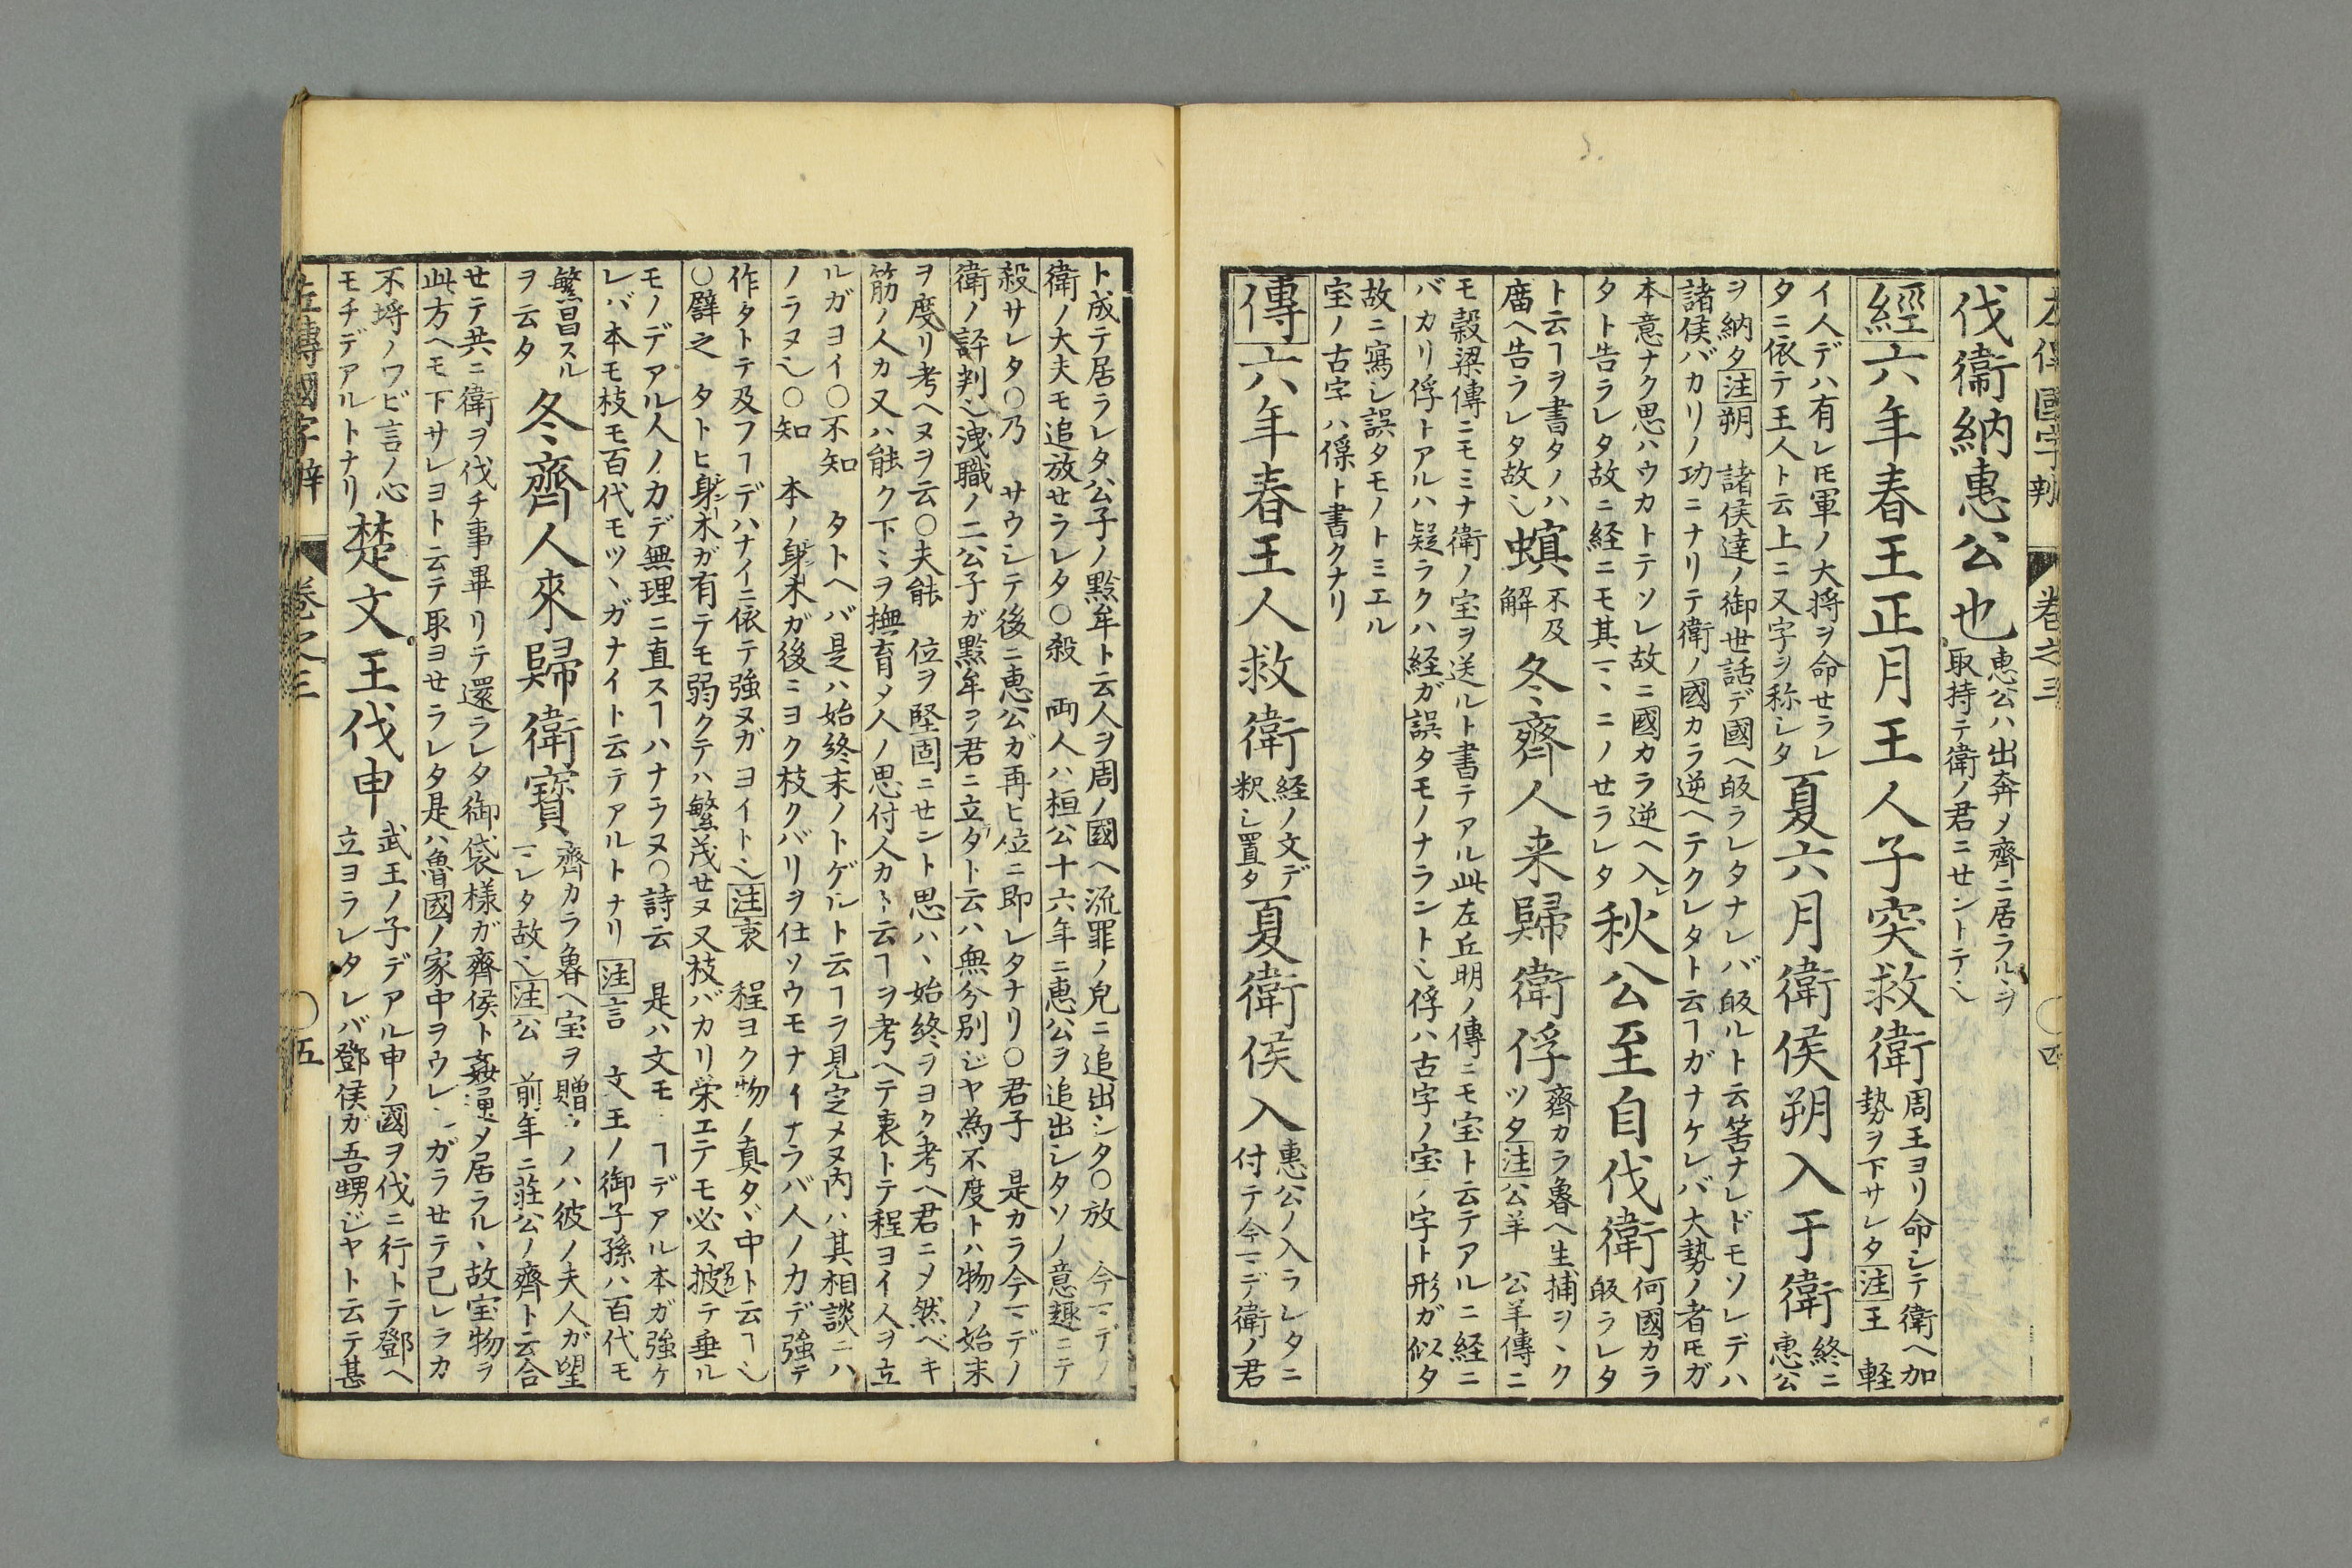 左傳國字辨 卷之三 〇四
伐衞納惠公也
惠公ハ出奔メ齊ニ居ラルヽヲ
取持テ衛ノ君ニセントテ乀
經六年春王正月王人子突救衛
周王ヨリ命シテ衛ヘ加
勢ヲ下サレタ注王 軽
イ人デハ有レ𪜈軍ノ大将ヲ命セラレ
タニ依テ王人ト云上ニ又字ヲ称レタ
夏六月衛侯朔入于衛
終ニ
惠公
ヲ納タ注朔 諸侯達ノ御世話デ國ヘ皈ラレタナレバ皈ルト云筈ナレドモソレデハ
諸侯バカリノ功ニナリテ衛ノ國カラ逆ヘテクレタト云ヿガナケレバ大勢ノ者𪜈ガ
本意ナク思ハウカトテソレ故ニ國カラ逆ヘ入レ
タト告ラレタ故ニ経ニモ其マヽニノせラレタ
秋公至自伐衛
何國カラ
皈ラレタ
ト云ヿヲ書タノハ
庿ヘ告ラレタ故乀
螟
不及
解
冬齊人来歸衛俘
齊カラ魯ヘ生捕ヲヽク
ツタ注公羊 公羊傳ニ
モ穀梁傳ニモミナ衛ノ宝ヲ送ルト書テアル此左丘明ノ傳ニモ宝ト云テアルニ経ニ
バカリ俘トアルハ疑ラクハ経ガ誤タモノナラント乀俘ハ古字ノ宝ノ字ト形ガ似タ
故ニ寫シ誤タモノトミエル
宝ノ古字ハ㑱ト書クナリ
傳六年春王人救衛
経ノ文デ
釈シ置タ
夏衛侯入
惠公ノ入ラレタニ
付テ今マデ衛ノ君
ト成テ居ラレタ公子ノ黔牟ト云人ヲ周ノ國ヘ流罪ノ皃ニ追出シタ〇放 今マデノ
衛ノ大夫モ追放せラレタ〇殺 両人ハ桓公十六年ニ惠公ヲ追出シタソノ意趣ニテ
殺サレタ〇乃 サウシテ後ニ恵公ガ再ヒ位ニ即レタナリ〇君子 是カラ今マデノ
衛ノ評判乀洩職ノ二公子ガ黔牟ヲ君ニ立タト云ハ無分別ジヤ為不度トハ物ノ始末
ヲ度リ考ヘヌヲ云〇夫能 位ヲ堅固ニせント思ハヽ始終ヲヨク考ヘ君ニメ然ベキ
筋ノ人カ又ハ能ク下ミヲ撫育メ人ノ思付人カト云ヿヲ考ヘテ衷トテ程ヨイ人ヲ立
ルガヨイ〇不知 タトヘバ是ハ始終末ノトゲルト云ヿラ見定メヌ内ハ其相談ニハ
ノラヌ乀〇知 本ノ身木ガ後ニヨク枝クバリヲ仕ソウモナイナラバ人ノ力デ強テ
作タトテ及フヿデハナイニ依テ強ヌガヨイト乀注衷 程ヨク物ノ真タヾ中ト云ヿ乀
〇譬之 タトヒ身木ガ有テモ弱クテハ繁茂せヌ又枝バカリ栄エテモ必ス披テ垂ル
モノデアル人ノカデ無理ニ直スヿハナラヌ〇詩云 是ハ文モ ヿデアル本ガ強ケ
レバ本モ枝モ百代モツヽガナイト云テアルトナリ注言 文王ノ御子孫ハ百代モ
繁昌スル
ヲ云タ
冬齊人來歸衛寶
齊カラ魯ヘ宝ヲ贈 ノハ彼ノ夫人ガ望
マレタ故乀注公 前年ニ荘公ノ齊ト云合
せテ共ニ衛ヲ伐チ事畢リテ還ラレタ御袋様ガ齊侯ト姦通メ居ラルヽ故宝物ヲ
此方ヘモ下サレヨト云テ取ヨせラレタ是ハ魯國ノ家中ヲウレ ガラせテ己レラカ
不埒ノワビ言ノ心
モチデアルトナリ
楚文王伐申
武王ノ子デアル申ノ國ヲ伐ニ行トテ鄧ヘ
立ヨラレタレバ鄧侯ガ吾甥ジヤト云テ甚
左傳國字辨 卷之三 〇五